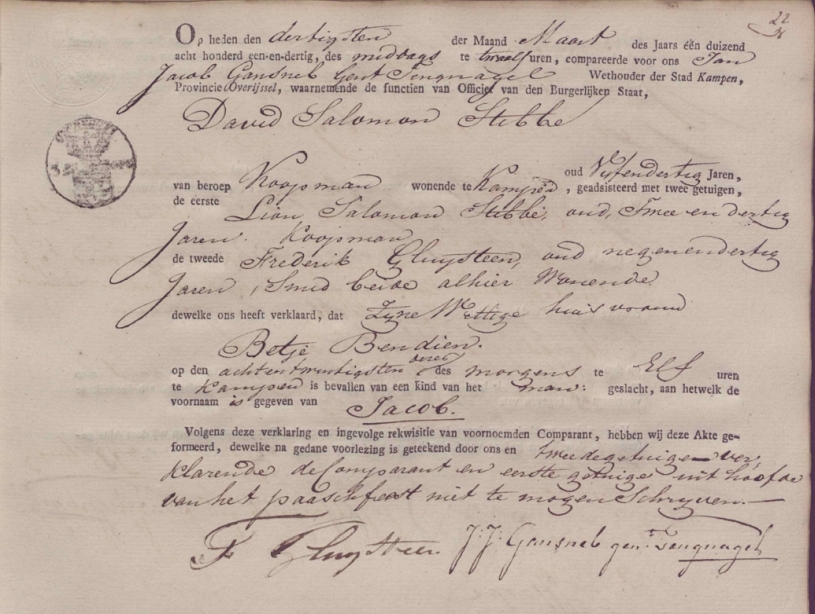 22
Op heden den dertigsten der Maand Maart des Jaars één duizend
acht honderd een-en-dertig, des middags te twaalf uren, compareerde voor ons Jan
Jacob Gansneb Gent Tengnagel Wethouder der Stad Kampen,
Provincie Overijssel, waarnemende de functien van Officier van den Burgerlijken Staat,
David Salomon Stibbe
oud Vijfendertig Jaren,
van beroep Koopman wonende te Kampen, geadsisteerd met twee getuigen,
de eerste Lion Salomon Stibbe, oud, Twee en dertig
Jaren. Koopman
de tweede Frederik Gluysteen, oud negenendertig
Jaren, Smid beide alhier Wonende
dewelke ons heeft verklaard, dat Zyne Wettige huisvrouw
Betje Bendien.
op den achtentwintigsten dezer des morgens te Elf uren
te Kampen is bevallen van een kind van het man: geslacht, aan hetwelk de
voornaam is gegeven van Jacob.
Volgens deze verklaring en ingevolge rekwisitie van voornoemden Comparant, hebben wij deze Akte ge-
formeerd, dewelke na gedane voorlezing is geteekend door ons en tweede getuige ver,
klarende de Comparant en eerste getuige uit hoofde
van het paaschfeest niet te mogen Schryven.—
F Gluysteen. J: J: Gansneb gen: Tengnagel